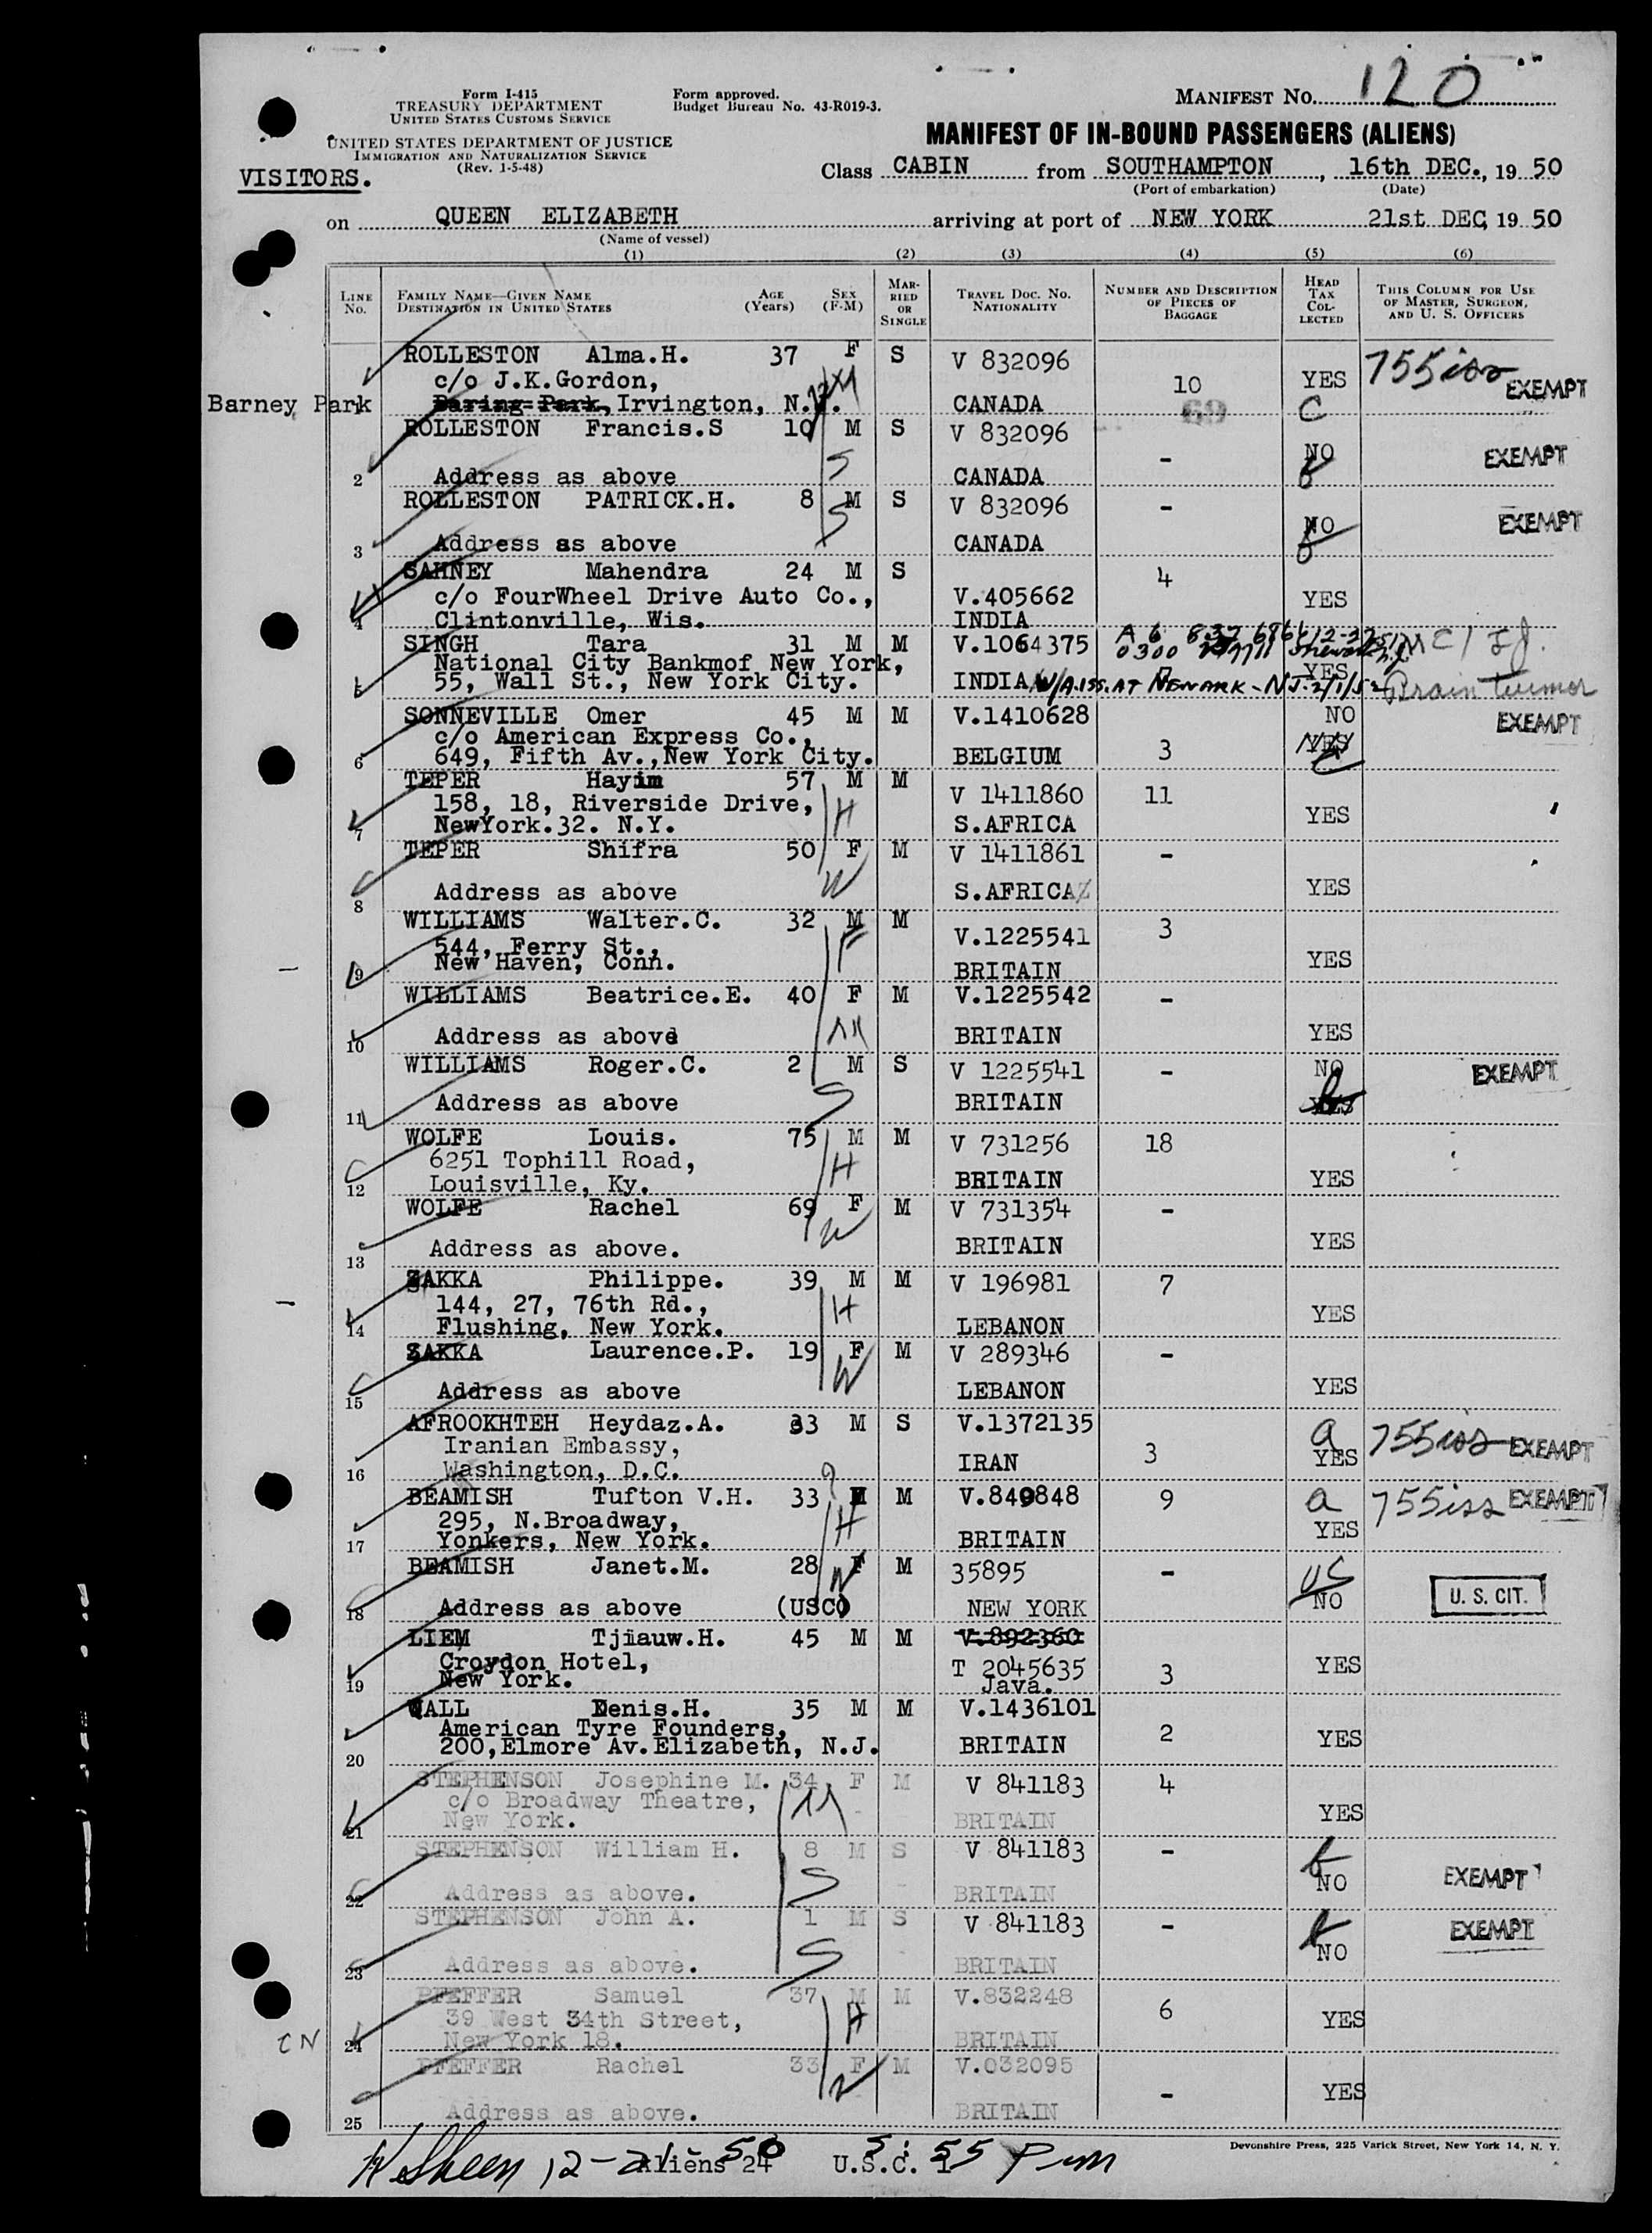 Form I-415
TREASURY DEPARTMENT
UNITED STATES CUSTOMS SERVICE
UNITED STATES DEPARTMENT OF JUSTICE
IMMIGRATION AND NATURALIZATION SERVICE
(Rev. 1-5-48)
Form approved.
Budget Bureau No. 43-R019-3.
MANIFEST NO. 120
MANIFEST OF IN-BOUND PASSENGERS (ALIENS)
VISITORS.
Class CABIN from SOUTHAMPTON, 16th DEC., 19 50
(Port of embarkation) (Date)
on QUEEN ELIZABETH arriving at port of NEW YORK 21st DEC, 19 50
(Name of vessel)
(1) (2) (3) (4) (5) (6)
LINE NO. FAMILY NAME—GIVEN NAME DESTINATION IN UNITED STATES AGE (Years) SEX (F-M) MARRIED OR SINGLE TRAVEL DOC. NO. NATIONALITY NUMBER AND DESCRIPTION OF PIECES OF BAGGAGE HEAD TAX COLLECTED THIS COLUMN FOR USE OF MASTER, SURGEON, AND U. S. OFFICERS
ROLLESTON Alma.H. 37 F S V 832096
c/o J.K.Gordon, 10 YES 755iss EXEMPT
Barney Park 1 Baring Park, Irvington, N.Y. CANADA 69 C
ROLLESTON Francis.S 10 M S V 832096
- NO EXEMPT
2 Address as above CANADA
ROLLESTON PATRICK.H. 8 M S V 832096 -
NO EXEMPT
3 Address as above CANADA
SAHNEY Mahendra 24 M S 4
c/o FourWheel Drive Auto Co., V.405662 YES
4 Clintonville, Wis. INDIA
SINGH Tara 31 M M V.1064375
National City Bankmof New York,
5 55, Wall St., New York City. INDIA 7 YES
AT NEWARK - NJ- 2/1/52 Brain tumor
SONNEVILLE Omer 45 M M V.1410628 NO EXEMPT
c/o American Express Co.,
6 649, Fifth Av.,New York City. BELGIUM 3 YES
TEPER Hayim 57 M M
158, 18, Riverside Drive, V 1411860 11
7 NewYork.32. N.Y. S.AFRICA YES
H
TEPER Shifra 50 F M V 1411861 -
8 Address as above S.AFRICA YES
W
WILLIAMS Walter.C. 32 M M 3
544, Ferry St., V.1225541
9 New Haven, Conn. BRITAIN YES
F
WILLIAMS Beatrice.E. 40 F M V.1225542 -
10 Address as above BRITAIN YES
M
WILLIAMS Roger.C. 2 M S V 1225541 - NO EXEMPT
11 Address as above BRITAIN YES
S
WOLFE Louis. 75 M M V 731256 18
6251 Tophill Road,
12 Louisville, Ky. BRITAIN YES
H
WOLFE Rachel 69 F M V 731354 -
13 Address as above. BRITAIN YES
W
ZAKKA Philippe. 39 M M V 196981 7
144, 27, 76th Rd.,
14 Flushing, New York. LEBANON YES
H
ZAKKA Laurence.P. 19 F M V 289346 -
15 Address as above LEBANON YES
W
AFROOKHTEH Heydaz.A. 33 M S V.1372135 a 755iss EXEMPT
Iranian Embassy, 3 YES
16 Washington, D.C. IRAN
BEAMISH Tufton V.H. 33 M M V.840848 9 a 755iss EXEMPT
295, N.Broadway,
17 Yonkers, New York. BRITAIN YES
H
BEAMISH Janet.M. 28 F M 35895 - US
18 Address as above (USC) NEW YORK NO U. S. CIT.
W
LIEM Tjiauw.H. 45 M M V.892360
Croydon Hotel, T 2045635 YES
19 New York. Java. 3
WALL Denis.H. 35 M M V.1436101
American Tyre Founders, 2
20 200,Elmore Av.Elizabeth, N.J. BRITAIN YES
STEPHENSON Josephine M. 34 F M V 841183 4
c/o Broadway Theatre,
21 New York. BRITAIN YES
M
STEPHENSON William H. 8 M S V 841183 -
22 Address as above. BRITAIN NO EXEMPT
S
STEPHENSON John A. 1 M S V 841183 - EXEMPT
23 Address as above. BRITAIN NO
S
PFEFFER Samuel 37 M M V.832248
39 West 34th Street, 6 YES
24 New York 18. BRITAIN
H
PFEFFER Rachel 33 F M V.032095
- YES
25 Address as above. BRITAIN
W
Devonshire Press, 225 Varick Street, New York 14, N. Y.
12-21-50 5:55 Pm
Aliens 24 U.S.C. 1